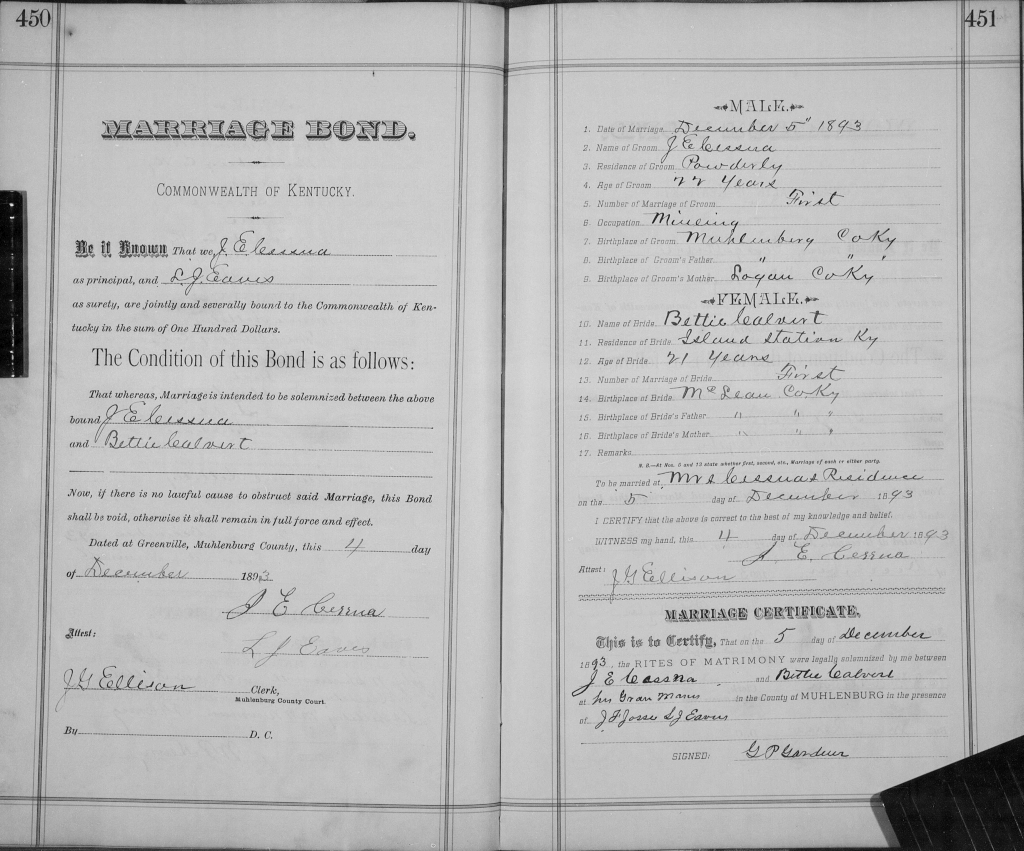 450
MARRIAGE BOND.
COMMONWEALTH OF KENTUCKY.
Be it Known That we, J E Cessna
as principal, and L. J. Eaves
as surety, are jointly and severally bound to the Commonwealth of Ken-
tucky in the sum of One Hundred Dollars.
The Condition of this Bond is as follows:
That whereas, Marriage is intended to be solemnized between the above
bound J E Cessna
and Bettie Calvert
Now, if there is no lawful cause to obstruct said Marriage, this Bond
shall be void, otherwise it shall remain in full force and effect.
Dated at Greenville, Muhlenburg County, this 4 day
of December 1893
J E Cessna
Attest:
L J Eaves
J G Ellison Clerk,
Muhlenburg County Court.
By D. C.
451
MALE.
1. Date of Marriage December 5" 1893
2. Name of Groom J E Cessna
3. Residence of Groom Powderly
4. Age of Groom 22 Years
5. Number of Marriage of Groom First
6. Occupation Mineing
7. Birthplace of Groom Muhlenberg Co Ky
8. Birthplace of Groom's Father " " "
9. Birthplace of Groom's Mother Logan Co Ky
FEMALE.
10. Name of Bride Bettie Calvert
11. Residence of Bride Island Station Ky
12. Age of Bride 21 Years
13. Number of Marriage of Bride First
14. Birthplace of Bride McLean Co Ky
15. Birthplace of Bride's Father " " "
16. Birthplace of Bride's Mother " " "
17. Remarks
N. B.—At Nos. 5 and 13 state whether first, second, etc., Marriage of each or either party.
To be married at Mrs Cessnas Residence
on the 5 day of December 1893
I CERTIFY that the above is correct to the best of my knowledge and belief.
WITNESS my hand, this 4 day of December 1893
J. E. Cessna
Attest: J G Ellison
MARRIAGE CERTIFICATE.
This is to Certify, That on the 5 day of December
1893, the RITES OF MATRIMONY were legally solemnized by me between
J E Cassna and Bettie Calvert
at his Gran Mams in the County of MUHLENBURG in the presence
of J F L J Eaves
SIGNED: G P Gardner